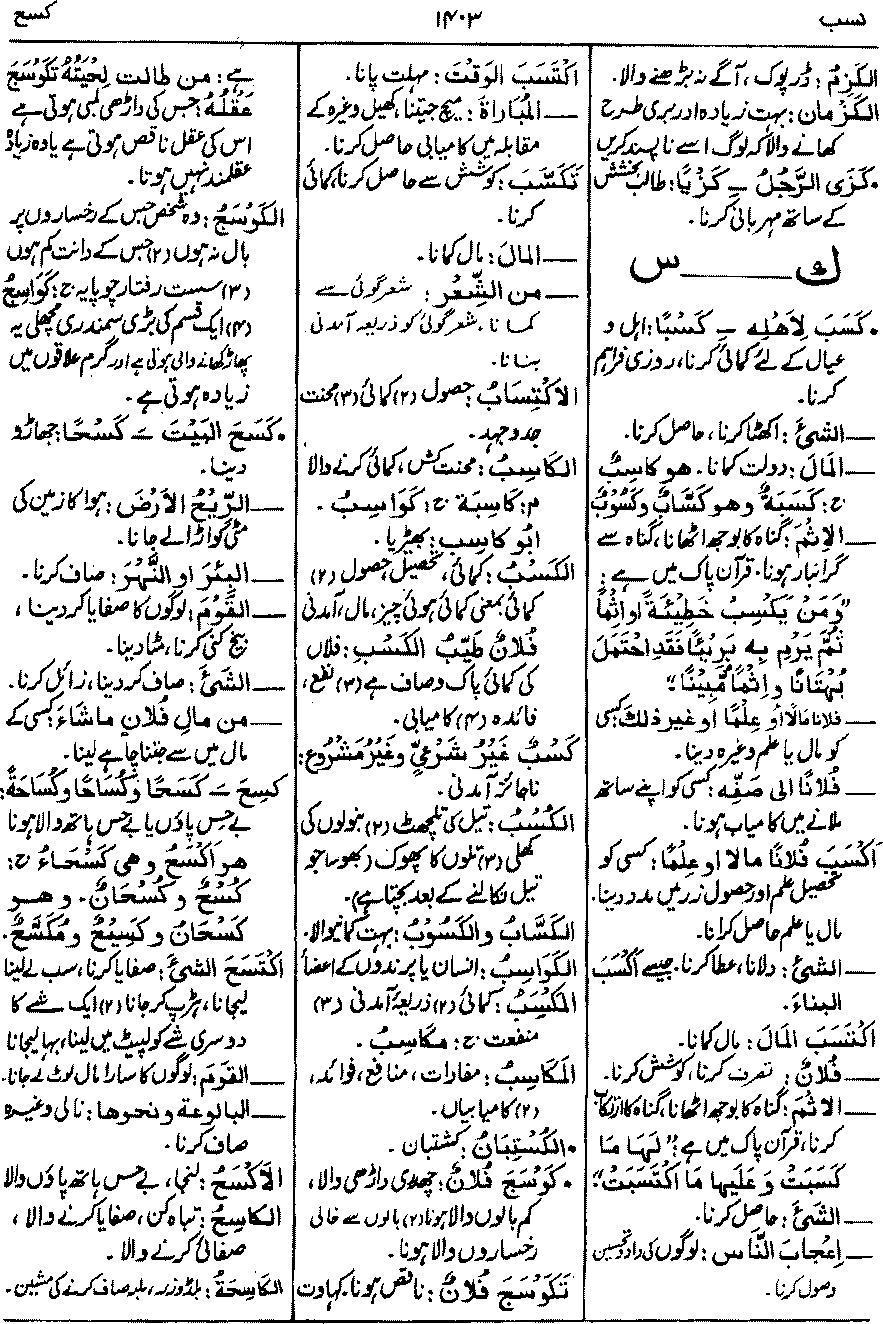 نسب ۱۴۰۳ کسح
الکَزِمُ: ڈرپوک، آگے نہ بڑھنے والا۔
الکَزْمان: بہت زیادہ اور بری طرح
کھانے والا کہ لوگ اسے ناپسند کریں
• کَزَی الرَّجُلُ ـِ کَزْیًا: طالب بخشش
کے ساتھ مہربانی کرنا۔
ك ــــــ س
• کَسَبَ لِاَهْلِه ـِ کَسْبًا: اہل و
عیال کے لئے کمائی کرنا، روزی فراہم
کرنا۔
ــــ الشیئَ: اکھٹا کرنا، حاصل کرنا۔
ــــ المَالَ: دولت کمانا۔ هو کاسِبٌ
ج: کَسَبَةٌ وهو کَسَّابٌ وکَسُوْبٌ
ــــ الاِثْمَ: گناہ کا بوجھ اٹھانا، گناہ سے
گرانبار ہونا۔ قرآن پاک میں ہے:
”وَمَنْ یَکْسِبْ خَطِیْئَةً اَوْ اِثْمًا
ثُمَّ یَرْمِ بِه بَرِیْئًا فَقَدِ احْتَمَلَ
بُهْتَانًا وَاِثْمًا مُّبِیْنًا“۔
ــــ فلانا مَالًا اَو عِلْمًا او غیر ذلك: کسی
کو مال یا علم وغیرہ دینا۔
ــــ فُلَانًا الی صَفِّه: کسی کو اپنے ساتھ
ملانے میں کامیاب ہونا۔
اَکْسَبَ فُلَانًا مالا او عِلْمًا: کسی کو
تحصیل علم اور حصول زر میں مدد دینا۔
مال یا علم حاصل کرانا۔
ــــ الشیئَ: دلانا، عطا کرنا۔ جیسے اَکْسَبَ
البناءَ۔
اکْتَسَبَ المَالَ: مال کمانا۔
ــــ فُلَانٌ: تصرف کرنا، کوشش کرنا۔
ــــ الاِثْمَ: گناہ کا بوجھ اٹھانا، گناہ کا ارتکاب
کرنا، قرآن پاک میں ہے: ”لَهَا مَا
کَسَبَتْ وَعَلَیها مَا اکْتَسَبَتْ“۔
ــــ الشیئَ: حاصل کرنا۔
ــــ اِعْجابَ النَّاسِ: لوگوں کی داد تحسین
وصول کرنا۔
اکْتَسَبَ الوَقْتَ: مہلت پانا۔
ــــ المُبَاراةَ: میچ جیتنا، کھیل وغیرہ کے
مقابلہ میں کامیابی حاصل کرنا۔
تَکَسَّبَ: کوشش سے حاصل کرنا، کمائی
کرنا۔
ــــ المَالَ: مال کمانا۔
ــــ من الشِّعْرِ: شعر گوئی سے
کمانا، شعر گوئی کو ذریعہ آمدنی
بنانا۔
الاکْتِسَابُ: حصول (۲) کمائی (۳) محنت
جدوجہد۔
الکَاسِبُ: محنت کش، کمائی کرنے والا
م: کاسِبة ج: کَوَاسِبُ۔
اَبُو کاسِب: بھیڑیا۔
الکَسْبُ: کمائی، تحصیل، حصول (۲)
کمائی بمعنی کمائی ہوئی چیز، مال، آمدنی
فُلَانٌ طَیِّبُ الکَسْبِ: فلاں
کی کمائی پاک و صاف ہے (۳) نفع،
فائدہ (۴) کامیابی۔
کَسْبٌ غَیْرُ شَرْعِیٍّ وغَیْرُ مَشْرُوعٍ:
ناجائز آمدنی۔
الکُسْبُ: تیل کی تلچھٹ (۲) بنولوں کی
کھلی (۳) تلوں کا پھوک (بھوسا جو
تیل نکالنے کے بعد بچتا ہے)۔
الکَسَّابُ والکَسُوْبُ: بہت کمانیوالا۔
الکَوَاسِبُ: انسان یا پرندوں کے اعضأ
المَکْسِبُ: کمائی (۲) ذریعۂ آمدنی (۳)
منفعت ج: مَکَاسِبُ۔
المَکَاسِبُ: مفادات، منافع، فوائد،
(۲) کامیابیاں۔
• الکُسْتِبَانُ: کشتبان۔
• کَوْسَجَ فُلَانٌ: چھدری داڑھی والا،
کم بالوں والا ہونا (۲) بالوں سے خالی
رخساروں والا ہونا۔
تَکَوْسَجَ فُلَانٌ: ناقص ہونا۔ کہاوت
ہے: من طالت لِحْیَتُهُ تَکَوْسَجَ
عَقْلُهُ: جس کی داڑھی لمبی ہوتی ہے
اس کی عقل ناقص ہوتی ہے یا وہ زیادہ
عقلمند نہیں ہونا۔
الکَوْسَجُ: وہ شخص جس کے رخساروں پر
بال نہ ہوں (۲) جس کے دانت کم ہوں
(۳) سست رفتار چوپایہ ج: کَوَاسِجُ
(۴) ایک قسم کی بڑی سمندری مچھلی یہ
پھاڑ کھانے والی ہوتی ہے اور گرم علاقوں میں
زیادہ ہوتی ہے۔
• کَسَحَ البَیْتَ ـَ کَسْحًا: جھاڑو
دینا۔
ــــ الرِّیْحُ الاَرْضَ: ہوا کا زمین کی
مٹی کو اڑا لے جانا۔
ــــ البِئرَ او النَّهْرَ: صاف کرنا۔
ــــ القَوْمَ: لوگوں کا صفایا کر دینا،
بیخ کنی کرنا، مٹا دینا۔
ــــ الشَیَٔ: صاف کر دینا، زائل کرنا۔
ــــ من مالِ فُلانٍ ماشَاءَ: کسی کے
مال میں سے جتنا چاہے لینا۔
کسِحَ ـَ کَسَحًا وکُسَاحًا وکُسَاحَةً:
بے حس پاؤں یا بے حس ہاتھ والا ہونا
هو اَکْسَحُ و هی کَسْحَاءُ ج:
کُسْحٌ و کُسْحَانٌ۔ و هــو
کَسْحَانُ و کَسِیْحٌ و مُکَسَّحٌ۔
اکْتَسَحَ الشیئَ: صفایا کرنا، سب لے لینا
لیجانا، ہڑپ کر جانا (۲) ایک شے کا
دوسری شے کو لپیٹ میں لینا، بہا لیجانا
ــــ القَومَ: لوگوں کا سارا مال لوٹ لے جانا۔
ــــ البالوعة ونحوها: نالی وغیرہ
صاف کرنا۔
الاَکْسَحُ: لنجا، بے حس ہاتھ پاؤں والا
الکاسِحُ: تباہ کن، صفایا کرنے والا،
صفائی کرنے والا۔
الکَاسِحَةُ: بلڈوزر، ملبہ صاف کرنے کی مشین۔